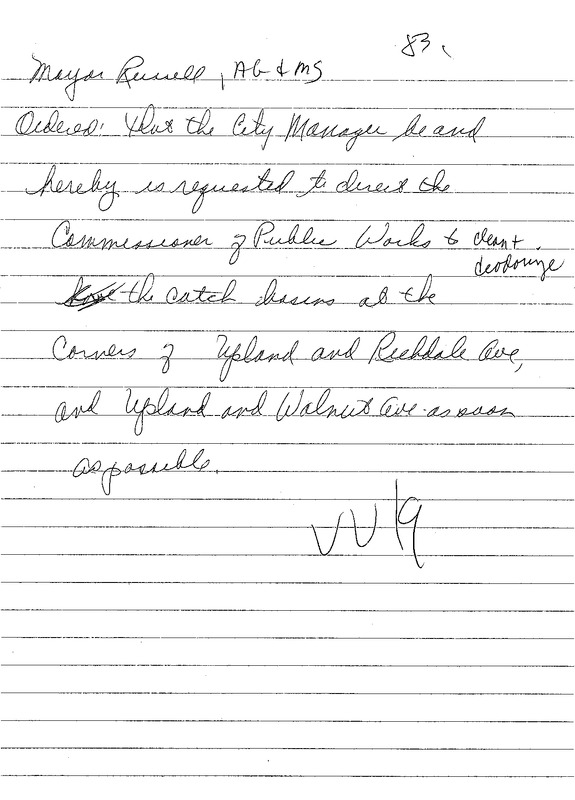 83.
Mayor Russell, AG & MS
Ordered: that the City Manager be and
hereby is requested to direct the
Commissioner of Public Works to clean &
deodorize
the catch basins at the
Corners of Upland and Richdale Ave,
and Upland and Walnut Ave as soon
as possible.